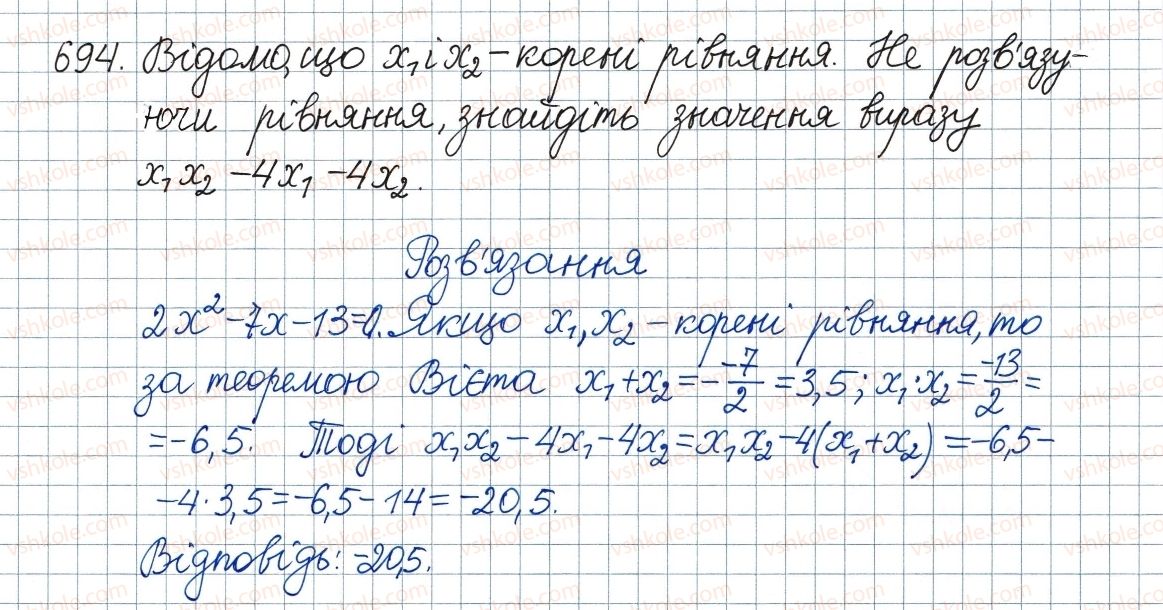 694. Відомо, що x₁ і x₂ – корені рівняння. Не розв'язу-
ючи рівняння, знайдіть значення виразу
x₁x₂ - 4x₁ - 4x₂.
Розв'язання
2x² - 7x - 13 = 0. Якщо x₁, x₂ – корені рівняння, то
за теоремою Вієта x₁ + x₂ = - -7/2 = 3,5; x₁·x₂ = -13/2 =
= -6,5. Тоді x₁x₂ - 4x₁ - 4x₂ = x₁x₂ - 4(x₁ + x₂) = -6,5 -
- 4·3,5 = -6,5 - 14 = -20,5.
Відповідь: -20,5.